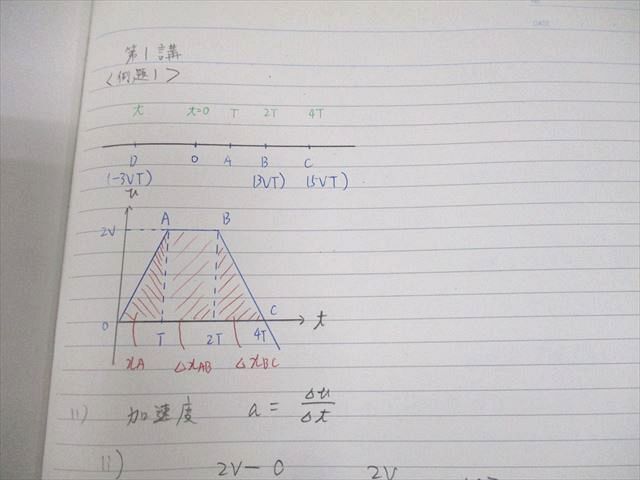 DATE
第1講
<例題1>
t t=0 T 2T 4T
D O A B C
(-3VT) (3VT) (5VT)
u
A B
2V
C
O T 2T 4T t
xA ΔxAB ΔxBC
(1) 加速度 a = Δu/Δt
(1)
2V-0 2V